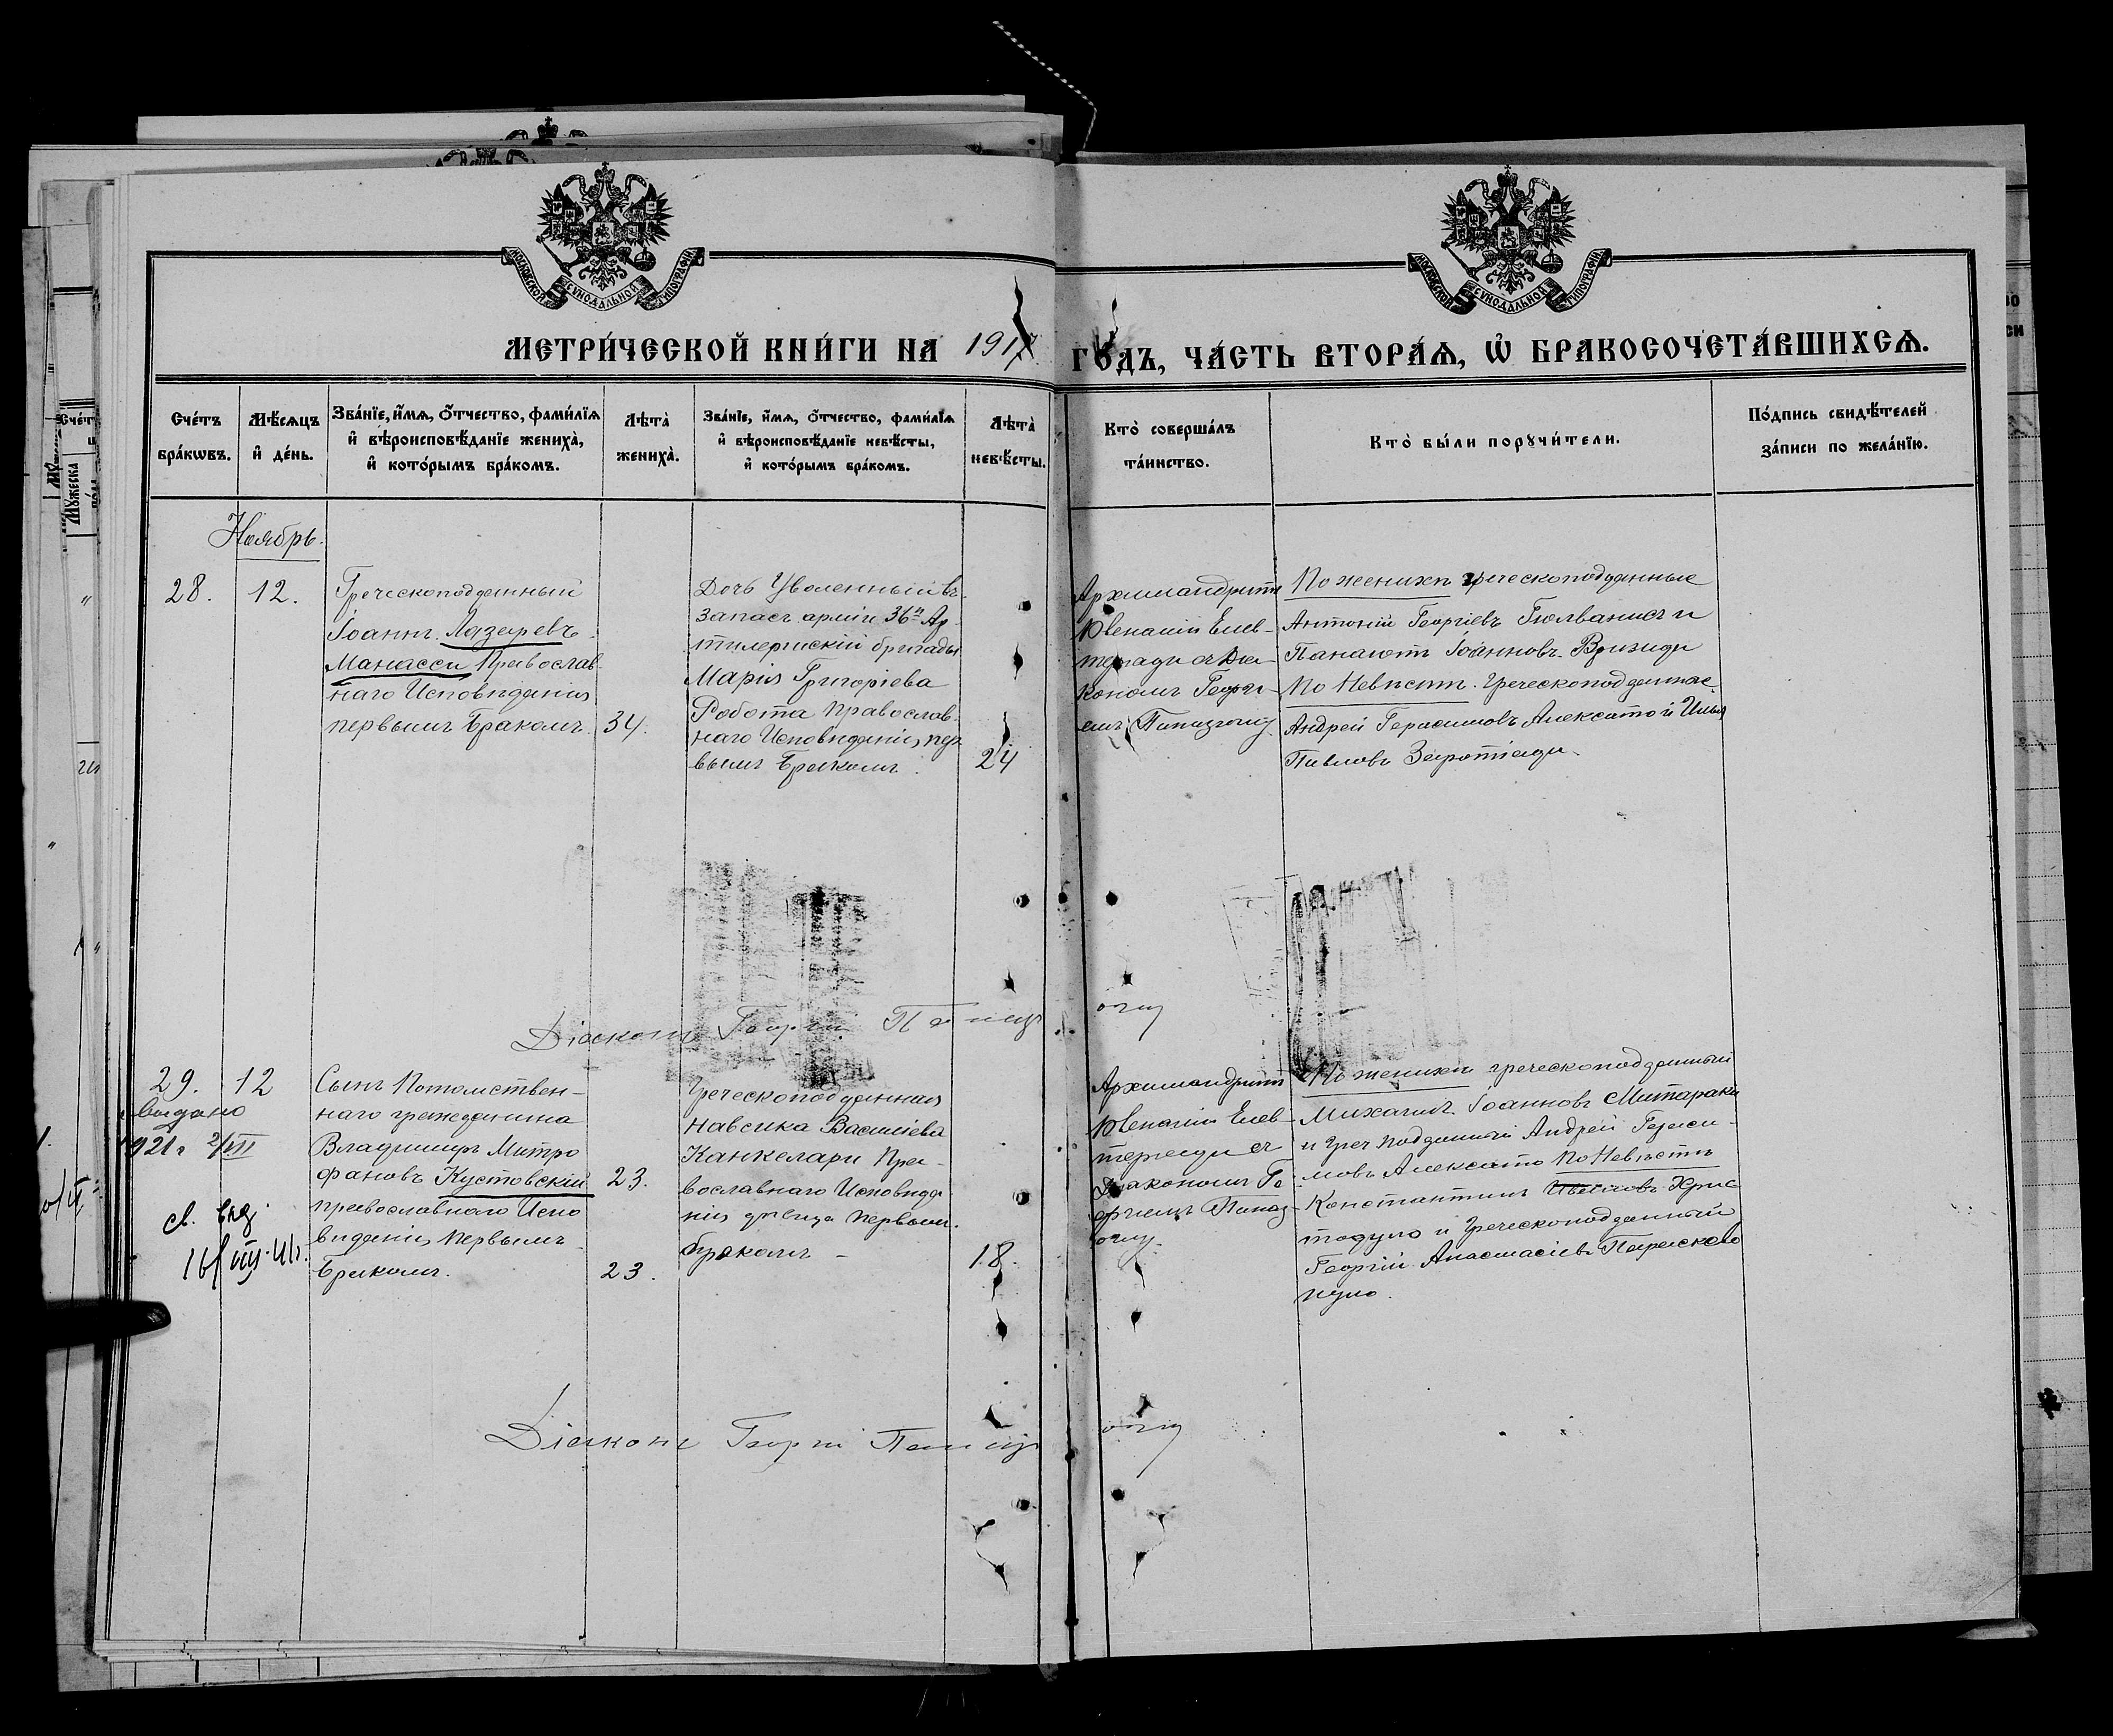 МОСКОВСКОЙ СУНОДАЛЬНОЙ ТИПОГРАФІИ
МОСКОВСКОЙ СУНОДАЛЬНОЙ ТИПОГРАФІИ
МЕТРИ́ЧЕСКОЙ КНИ́ГИ НА 1917 ГО́ДЪ, ЧА́СТЬ ВТОРА́Ѧ, Ѡ҆ БРАКОСОЧЕТА́ВШИХСѦ.
Сче́тъ бра́кѡвъ.
Мѣ́сѧцъ и҆ де́нь.
Зва́нїе, и҆́мѧ, ѻ҆́тчество, фами́лїѧ и҆ вѣроисповѣ́данїе жениха̀, и҆ кото́рымъ бра́комъ.
Лѣта̀ жениха̀.
Зва́нїе, и҆́мѧ, ѻ҆́тчество, фами́лїѧ и҆ вѣроисповѣ́данїе невѣ́сты, и҆ кото́рымъ бра́комъ.
Лѣта̀ невѣ́сты.
Кто̀ соверша́лъ та́инство.
Кто̀ бы́ли порꙋчи́тели.
По́дпись свидѣ́телей за́писи по жела́нїю.
Ноябрь.
28.
12.
Греческоподданный
Іоаннъ Лазаревъ
Манасси Православ
наго Исповѣданія
первымъ бракомъ.
34.
Дочь Уволенный въ
запасъ арміи 36й Ар
тилерискій бригады
Марія Григоріева
Робота Православ
наго Исповѣданія, пер
вымъ бракомъ.
24
Архимандритъ
Ювеналій Елев
теріади съ Діа
кономъ Георгі
емъ Папазоглу
По женихѣ греческоподданные
Антоній Георгіевъ Гюлванисъ и
Панаіотъ Іоанновъ Вризиди
По Невѣстѣ. Греческоподданные
Андрей Герасимовъ Алексато и Илья
Павловъ Зафотіади.
Діаконъ Георгій Папазоглу
29.
12
выдано
1921 г 2/VII
св. выд.
16/VIII-41г.
Сынъ Потомствен
наго гражданина
Владимиръ Митро
фановъ Кустовскій
православнаго Испо
вѣданія, Первымъ
бракомъ.
23.
23.
Греческоподданная
Навсика Василіева
Канкелари Пра
вославнаго Исповѣда
нія дѣвица Первым.
бракомъ
18.
Архимандритъ
Ювеналій Елев
теріади съ
Діакономъ Ге
оргіемъ Папаз
оглу.
По женихѣ греческоподданный
Михаилъ Іоанновъ Митараки
и Греч подданный Андрей Гераси
мовъ Алексато По Невѣстѣ
Константинъ Ивановъ Хрис
тодуло и Греческоподданный
Георгій Анастасіевъ Параскево
пуло.
Діаконъ Георгій Папазоглу